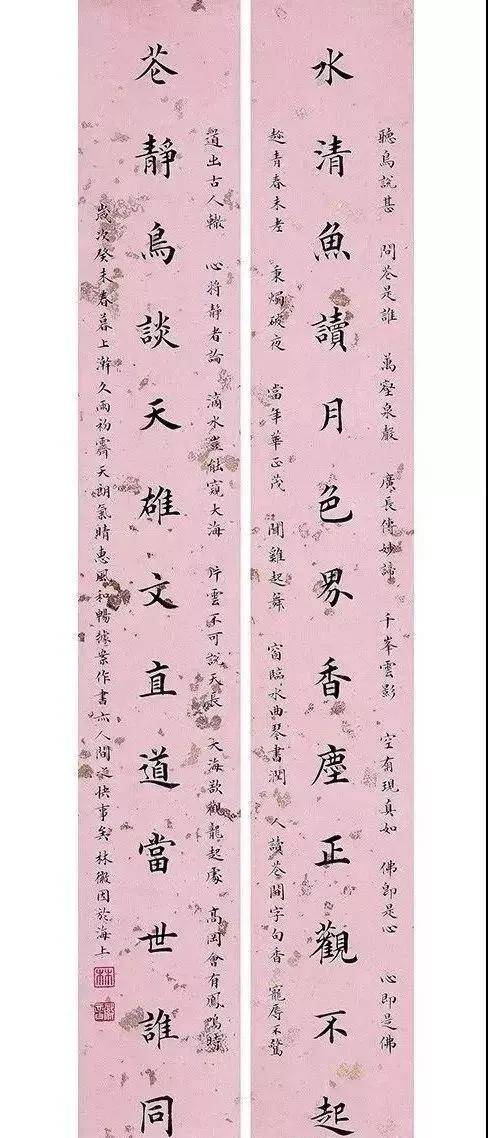 聽鳥說甚 問花是誰 萬壑泉聲 廣長傳妙諦 千峯雲影 空有現真如 佛即是心 心即是佛
水清魚讀月色界香塵正觀不起
趁青春未老 秉燭破夜 當年華正茂 聞雞起舞 窗臨水曲琴書潤 人讀花間字句香 寵辱不驚
道出古人轍 心將静者論 滴水豈能窺大海 片雲不可說天長 大海欲觀龍起處 高岡會有鳳鳴時
花靜鳥談天雄文直道當世誰同
歲次癸未春暮上澣久雨初霽天朗氣晴惠風和暢據案作書亦人間是快事矣林徽因於海上